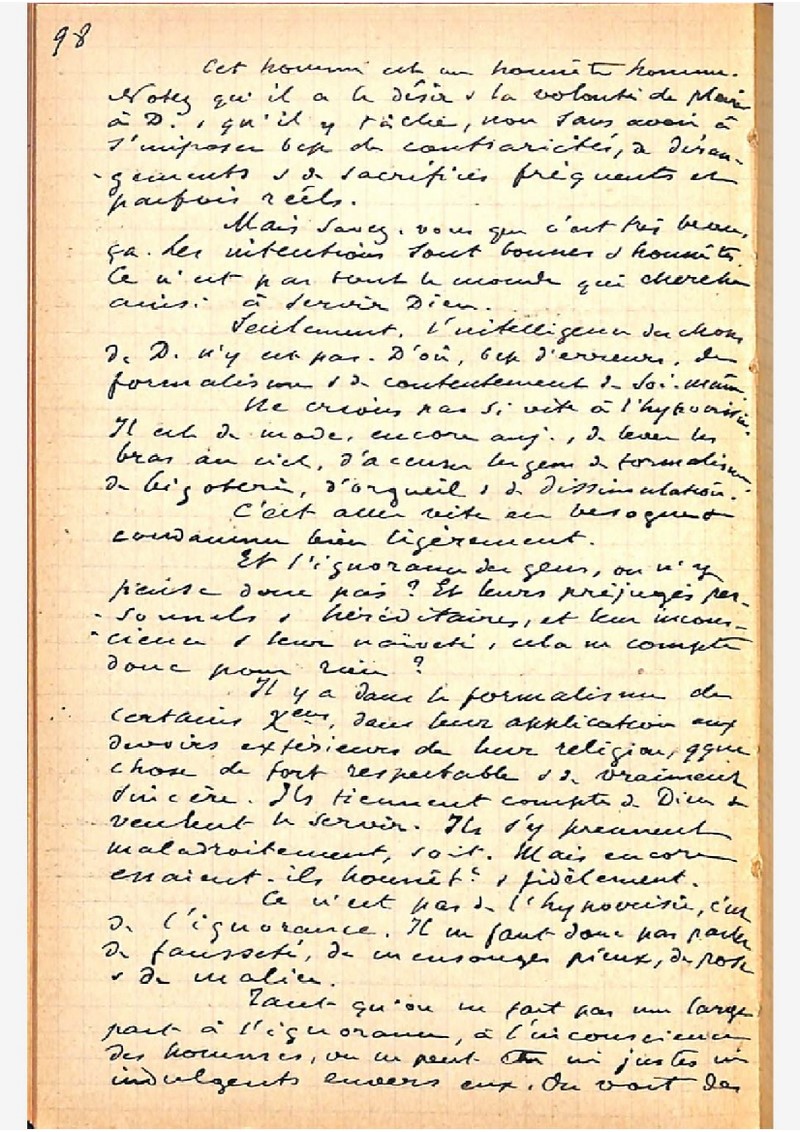 98
Cet homme est un honnête homme.
Notez qu'il a le désir & la volonté de plaire
à D., qu'il y tâche, non sans avoir à
s'imposer bcp de contrariétés, de déran-
gements & de sacrifices fréquents et
parfois réels.
Mais savez-vous que c'est très beau,
ça. Les intentions sont bonnes & honnêtes.
Ce n'est pas tout le monde qui cherche
ainsi à servir Dieu.
Seulement, l'intelligence des choses
de D. n'y est pas. D'où, bcp d'erreurs, de
formalisme & de contentement de soi-même.
Ne crions pas si vite à l'hypocrisie.
Il est de mode, encore auj., de lever les
bras au ciel, d'accuser les gens de formalisme,
de bigoterie, d'orgueil & de dissimulation.
C'est aller vite en besogne &
condamner bien légèrement.
Et l'ignorance des gens, on n'y
pense donc pas ? Et leurs préjugés per-
sonnels & héréditaires, et leur incons-
cience & leur naïveté, cela ne compte
donc pour rien ?
Il y a dans le formalisme de
certains Xens, dans leur application aux
devoirs extérieurs de leur religion, qque
chose de fort respectable & de vraiment
sincère. Ils tiennent compte de Dieu &
veulent le servir. Ils s'y prennent
maladroitement, soit. Mais encore
essaient-ils honnêt<sup>t</sup> & fidèlement.
Ce n'est pas de l'hypocrisie, c'est
de l'ignorance. Il ne faut donc pas parler
de fausseté, de mensonges pieux, de pose
& de malice.
Tant qu'on ne fait pas une large
part à l'ignorance, à l'inconscience
des hommes, on ne peut être ni justes ni
indulgents envers eux. On voit des